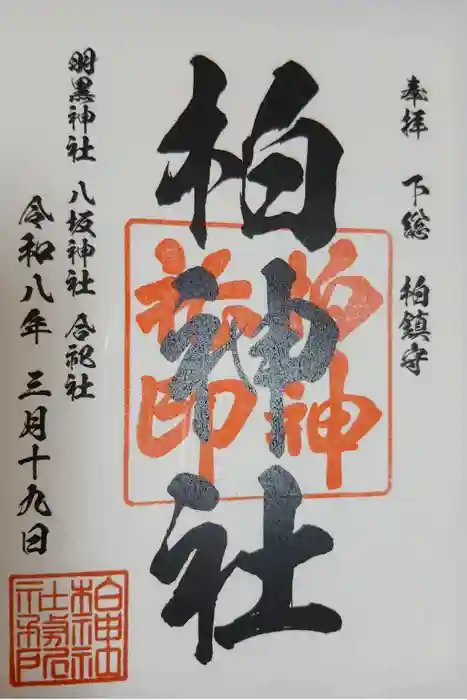 奉拝 下総 柏鎮守
柏神社
柏神
社印
羽黒神社 八坂神社 合祀社
令和八年 三月十九日
柏神社
社務所印